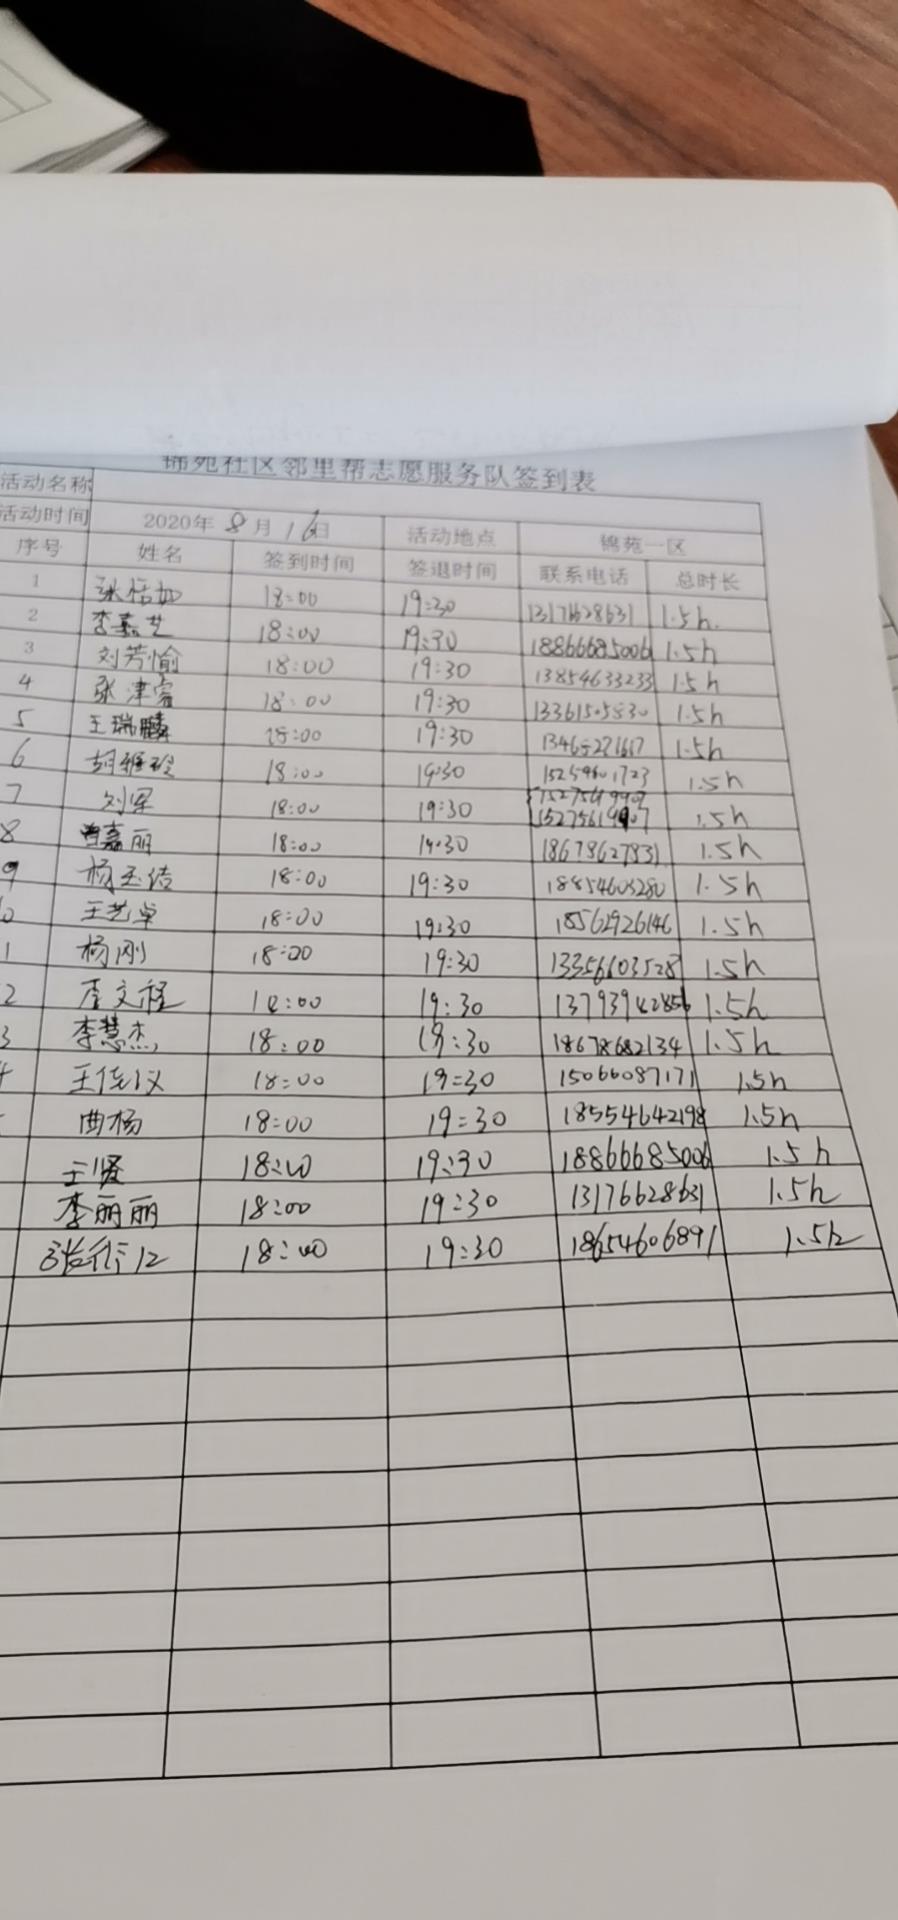 锦苑社区邻里帮志愿服务队签到表
活动名称
活动时间 2020年 8月 16日 活动地点 锦苑一区
序号 姓名 签到时间 签退时间 联系电话 总时长
1 张恬如 18:00 19:30 13176628631 1.5h.
2 李嘉艺 18:00 19:30 18866685006 1.5h
3 刘芳愉 18:00 19:30 13854633233 1.5h
4 张津睿 18:00 19:30 13361505830 1.5h
5 王瑞麟 18:00 19:30 13465271617 1.5h
6 胡雅玲 18:00 19:30 15259601723 1.5h
7 刘军 18:00 19:30 15275619907 1.5h
8 曹嘉丽 18:00 19:30 18678627831 1.5h
9 杨玉洁 18:00 19:30 18854603280 1.5h
0 王艺卓 18:00 19:30 18562926146 1.5h
1 杨刚 18:00 19:30 13356603528 1.5h
2 文程 18:00 19:30 13793942856 1.5h
3 李慧杰 18:00 19:30 18678682134 1.5h
4 王佳仪 18:00 19:30 15066087171 1.5h
曲杨 18:00 19:30 18554642198 1.5h
王贤 18:00 19:30 18866685006 1.5h
李丽丽 18:00 19:30 13176628631 1.5h
18:00 19:30 18654606891 1.5h